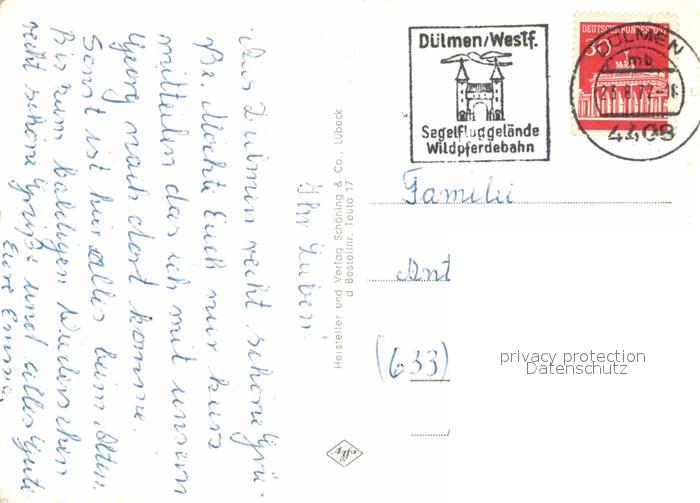 Ihr Lieben.
Aus Dülmen recht schöne Grü-
ße. Möchte Euch nur kurz
mitteilen das ich mit unserm
Georg nach dort komme.
Sonst ist hier alles beim Alten.
Bis zum baldigen Wiedersehen
recht schöne Grüße und alles Gute
Eure Emma.
Hersteller und Verlag Schöning & Co., Lübeck
d Bestellnr. Teuto 17
Dülmen/Westf.
Segelfluggelände
Wildpferdebahn
DEUTSCHE BUNDESPOST
30
DÜLMEN
mb
23.8.72-16
4408
Familie
(633)
privacy protection
Datenschutz